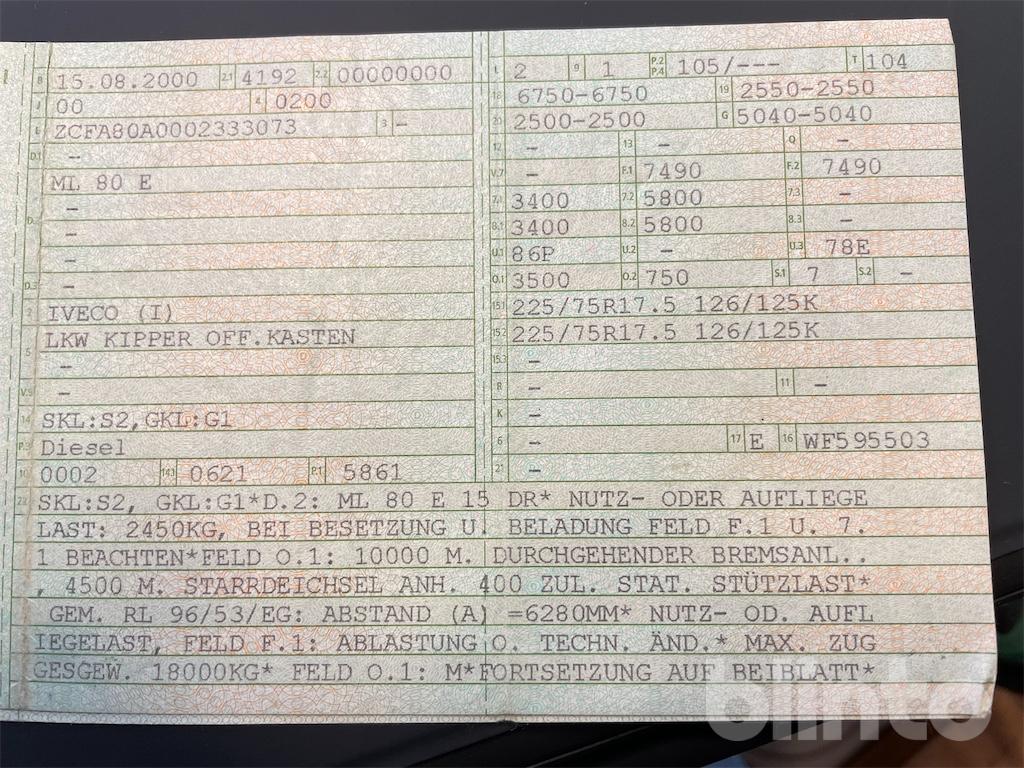 B 15.08.2000 2.1 4192 2.2 00000000
J 00 4 0200
E ZCFA80A0002333073 3 -
D.1 -
ML 80 E
-
D.2 -
-
D.3 -
2 IVECO (I)
LKW KIPPER OFF.KASTEN
5 -
V.9 -
14 SKL:S2,GKL:G1
P.3 Diesel
10 0002 14.1 0621 P.1 5861
L 2 9 1 P.2 P.4 105/--- T 104
18 6750-6750 19 2550-2550
20 2500-2500 G 5040-5040
12 - 13 - Q -
V.7 - F.1 7490 F.2 7490
7.1 3400 7.2 5800 7.3 -
8.1 3400 8.2 5800 8.3 -
U.1 86P U.2 - U.3 78E
O.1 3500 O.2 750 S.1 7 S.2 -
15.1 225/75R17.5 126/125K
15.2 225/75R17.5 126/125K
15.3 -
R - 11 -
K -
6 - 17 E 16 WF595503
21 -
22 SKL:S2, GKL:G1*D.2: ML 80 E 15 DR* NUTZ- ODER AUFLIEGE
LAST: 2450KG, BEI BESETZUNG U. BELADUNG FELD F.1 U. 7.
1 BEACHTEN*FELD O.1: 10000 M. DURCHGEHENDER BREMSANL..
, 4500 M. STARRDEICHSEL ANH. 400 ZUL. STAT. STÜTZLAST*
GEM. RL 96/53/EG: ABSTAND (A) =6280MM* NUTZ- OD. AUFL
IEGELAST, FELD F.1: ABLASTUNG O. TECHN. ÄND.* MAX. ZUG
GESGEW. 18000KG* FELD O.1: M*FORTSETZUNG AUF BEIBLATT*
blinto